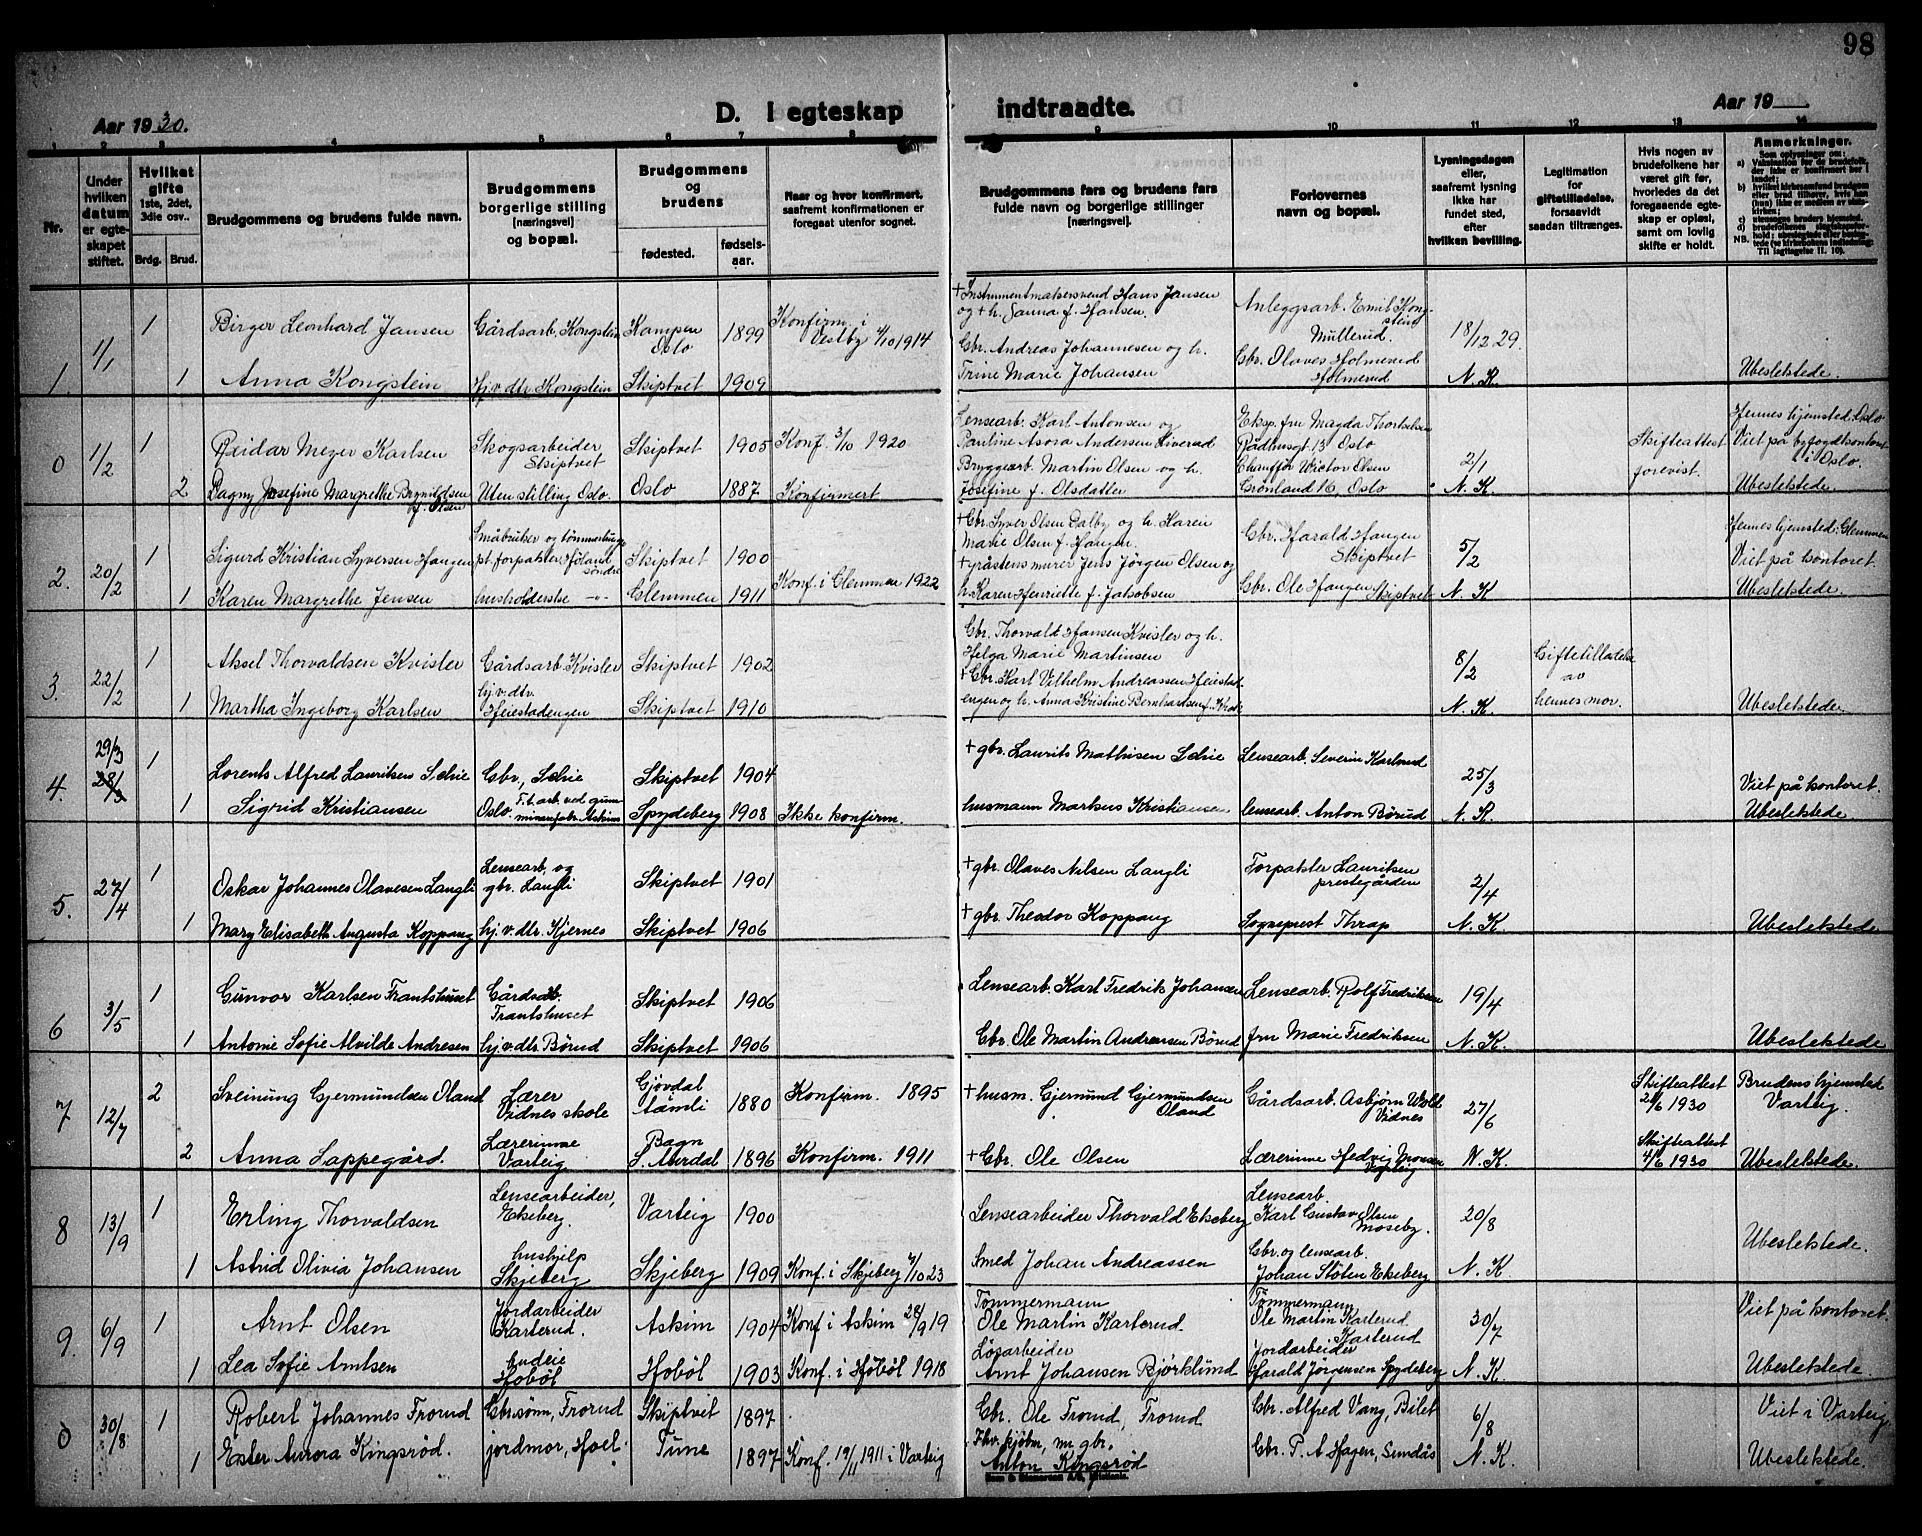 98
Aar 1930.
D. I egteskap indtraadte.
Aar 19
1 2 3 4 5 6 7 8 9 10 11 12 13 14
Nr.
Under hvilken datum er egteskapet stiftet.
Hvilket gifte 1ste, 2det, 3die osv..
Brdg. Brud.
Brudgommens og brudens fulde navn.
Brudgommens borgerlige stilling [næringsvei] og bopæl.
Brudgommens og brudens
fødested. fødselsaar.
Naar og hvor konfirmert, saafremt konfirmationen er foregaat utenfor sognet.
Brudgommens fars og brudens fars fulde navn og borgerlige stillinger [næringsvei].
Forlovernes navn og bopæl.
Lysningsdagen eller, saafremt lysning ikke har fundet sted, efter hvilken bevilling.
Legitimation for giftetilladelse, forsaavidt saadan tiltrænges.
Hvis nogen av brudefolkene har været gift før, hvorledes da det foregaaende egteskap er opløst, samt om lovlig skifte er holdt.
Anmerkninger.
Som oplysninger om:
1. 1/1
1 Birger Leonhard Jansen Gårdsarb. Kongstein Kampen Oslo 1899 Konfirm. i Vestby 4/10 1914
+ Instrumentmakersvend Hans Jansen og + h. Janna f. Hansen. Anleggsarb. Emil Kongstein Mullerud. 18/12 29.
1 Anna Kongstein Hj.v.dtr Kongstein Skiptvet 1909
Gbr. Andreas Johannesen og h. Trine Marie Johansen Gbr. Olaves Holmerud Holmerud N. K. Ubeslektede.
0 1/2
1 Reidar Meyer Karlsen Skogsarbeider Skiptvet Skiptvet 1905 Konf. 3/10 1920
Lensearb. Karl Antonsen og Pauline Asora Andersen Liverud Eksp. frn Magda Thorkelsen Rådhusgt 13 Oslo 2/1 Skifteattest forevist. Hennes hjemsted: Oslo Viet på byfogdkontoret i Oslo.
2 Dagny Josefine Margrethe Brynildsen f. Olsen Uten stilling Oslo. Oslo 1887 Konfirmert
Bryggearb. Martin Olsen og h. Josefine f. Olsdatter Chauffør Victor Olsen Grønland 16, Oslo N. K. Ubeslektede.
2. 20/2
1 Sigurd Kristian Syversen Haugen Småbruker og tømmerhugger pt. forpakter Høland søndre Skiptvet 1900
+ Gbr. Syver Olsen Dalby og h. Karen Marie Olsen f. Haugen. Gbr. Harald Haugen Skiptvet 5/2 Hennes hjemsted: Glemmen Viet på kontoret.
1 Karen Margrethe Jensen husholderske -"- Glemmen 1911 Konf. i Glemmen 1922
+ gråstensmurer Jens Jörgen Olsen og h. Karen Henriette f. Jakobsen Gbr. Ole Haugen Skiptvet N. K Ubeslektede.
3. 22/2
1 Aksel Thorvaldsen Kvisler Gårdsarb. Kvisler Skiptvet 1902
Gbr. Thorvald Hansen Kvisler og h. Helga Marie Martinsen 8/2 Giftetilladelse av hennes mor.
1 Martha Ingeborg Karlsen hj.v.dtr. Heiestadengen Skiptvet 1910
+ Gbr. Karl Vilhelm Andreassen Heiestadengen og h. Anna Kristine Bernhardsen N. K. Ubeslektede.
4. 29/3 28/3
1 Lorents Alfred Lauritsen Schie Gbr., Schie Skiptvet 1904
+ gbr. Laurits Mathisen Schie Lensearb. Severin Karlsrud 25/3 Viet på kontoret.
1 Sigrid Kristiansen Oslo. F.t. arb. ved gummivarefabr. Askim Spydeberg 1908 Ikke konfirm.
husmann Markus Kristiansen lensearb. Anton Børud N. K. Ubeslektede.
5. 27/4
1 Oskar Johannes Olavesen Langli Lensearb. og gbr. Langli Skiptvet 1901
+ gbr. Olaves Nilsen Langli Forpakter Lauritsen prestegården 2/4
1 Mary Elisabeth Augusta Koppang hj.v.dtr. Kjernes Skiptvet 1906
+ gbr. Theodor Koppang Sogneprest Thrap N. K. Ubeslektede
6 3/5
1 Gunvor Karlsen Frantshuset Gårdsarb. Frantshuset Skiptvet 1906
Lensearb. Karl Fredrik Johansen Lensearb. Rolf Fredriksen 19/4
1 Antonie Sofie Alvilde Andresen hj.v.dtr Børud Skiptvet 1906
Gbr. Ole Martin Andreassen Børud frn Marie Fredriksen N. K. Ubeslektede
7 12/7
2 Sveinung Gjermundsen Oland Lærer Vidnes skole Gjövdal Åmli 1880 Konfirm. 1895
+ husm. Gjermund Gjermundsen Oland Gårdsarb. Asbjørn Wold Vidnes 27/6 Skifteattest 24/6 1930 Brudens hjemsted Varteig.
2 Anna Sappegård. Lærerinne Varteig Bagn S. Aurdal 1896 Konfirm. 1911
+ Gbr. Ole Olsen Lærerinne Hedvig Monsen Varteig N. K. Skifteattest 4/6 1930 Ubeslektede.
8 13/9
1 Erling Thorvaldsen Lensearbeider, Ekeberg. Varteig 1900
Lensearbeider Thorvald Ekeberg Lensearb. Karl Gustav Olsen Moseby. 20/8
1 Astrid Olivia Johansen hushjelp Skjeberg Skjeberg 1909 Konf. i Skjeberg 7/10 23
Smed Johan Andreassen Gbr. og lensearb. Johan Støten Ekeberg N. K. Ubeslektede.
9. 6/9
1 Arnt Olsen Jordarbeider Karterud. Askim 1904 Konf i Askim 28/9 19
Tømmermann Ole Martin Karterud. Tømmermann Ole Martin Karterud. Karterud 30/7 Viet på kontoret.
1 Lea Sofie Arntsen budeie Hobøl Hobøl 1903 Konf. i Hobøl 1918
Løsarbeider Arnt Johansen Bjørklund Jordarbeider Harald Jørgensen Spydeberg N. K. Ubeslektede.
0 30/8
1 Robert Johannes Frorud Gbr.sønn, Frorud Skiptvet 1897
Gbr. Ole Frorud, Frorud Gbr. Alfred Vang, Bilet 6/8 Viet i Varteig
1 Ester Aurora Kingsrød. jordmor, Hoel. Tune 1897 Konf. 19/11 1911 i Varteig
Fhv. kjøbm, nu gbr. Anton Kingsrød Gbr. P. A Hagen, Sundås N. K. Ubeslektede.